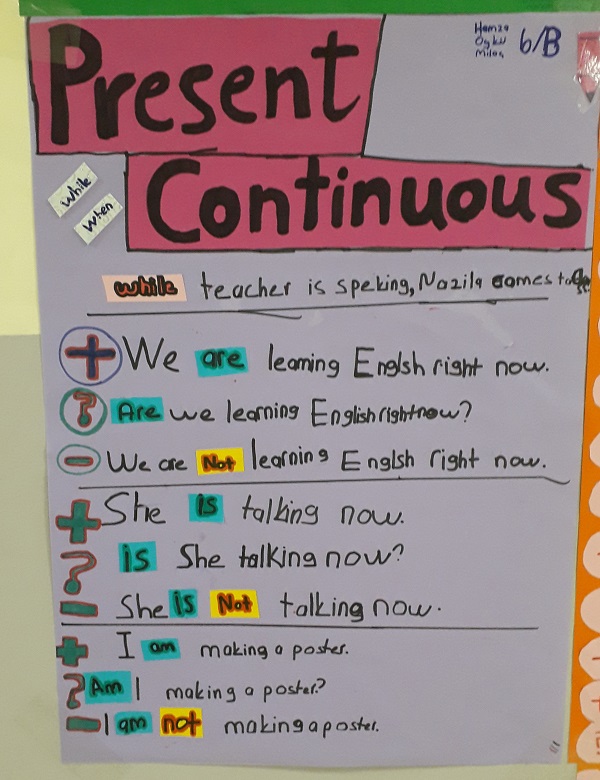 Present
Hamza
Oğkü
Milas
6/B
Continuous
while
when
while teacher is speking, Nazila comes to
+ We are learning Englsh right now.
? Are we learning English right now?
- We are Not learning Englsh right now.
+ She is talking now.
? is She talking now?
- She is Not talking now.
+ I am making a poster.
? Am I making a poster?
- I am not making a poster.